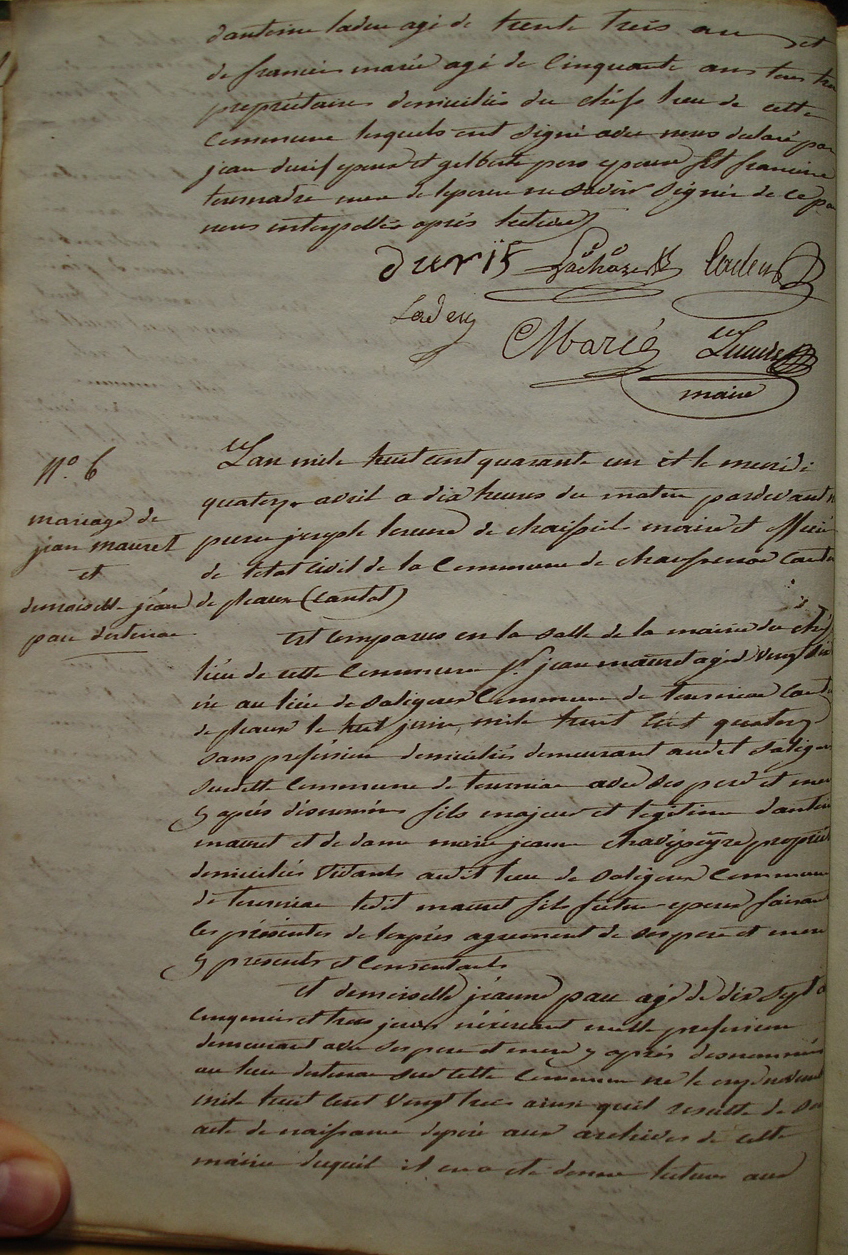 d'antoine ladeu agé de trente trois ans et
de francois marié agé de Cinquante ans tous
propriétaires domiciliés du chef lieu de cette
Commune lesquels ont signé avec nous declaré par
jean durif epoux et gilberte epouse et francoise
mere de lepouse ne savoir signer de ce par
nous interpellés après lecture
durif Lachaze Ladeu
Ladeu
Marié
maire
N° 6
mariage de
jean mauret
et
demoiselle jeane
pau d'estenac
L'an mile huit cent quarante un et le mercredi
quatorze avril a dix heures du matin pardevant n
pierre joseph de maire et officier
de l'etat Civil de la Commune de chaussenac Canton
de pleaux (cantal)
Est Comparus en la salle de la mairie du chef
lieu de cette Commune Sr jean mauret agé de vingt six
né au lieu de saliges Commune de tourniac Canton
de pleaux le huit juin mile huit cent quatorze
sans profession domiciliés demeurant audit saliges
susdite Commune de tourniac avec ses pere et mere
y après désnommés fils majeur et legitime d'antoine
mauret et de dame marie jeanne propriet
domiciliés vivants audit lieu de saliges Commune
de tourniac ledit mauret fils futur epoux faisant
les présentes de l'exprès agrement de ses pere et mere
y presents et Consentants
Et demoiselle jeanne pau agé de dix sept a
Cinq mois et trois jours n'exercant nulle profession
demeurant avec ses pere et mere y après désnommés
au lieu d'estenac sus cette Commune né le onze novembre
mile huit Cent Vingt trois ainsi qu'il resulte de son
acte de naissance deposé aux archives de cette
mairie duquel il en a été donné lecture aux